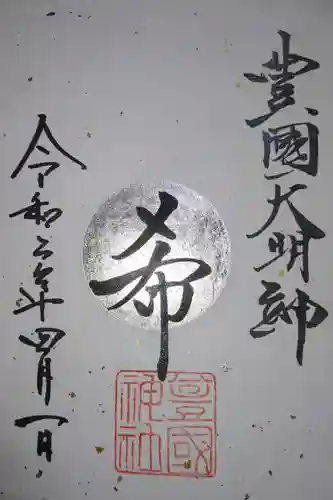 豊國大明神
希
豊國神社
令和三年四月一日